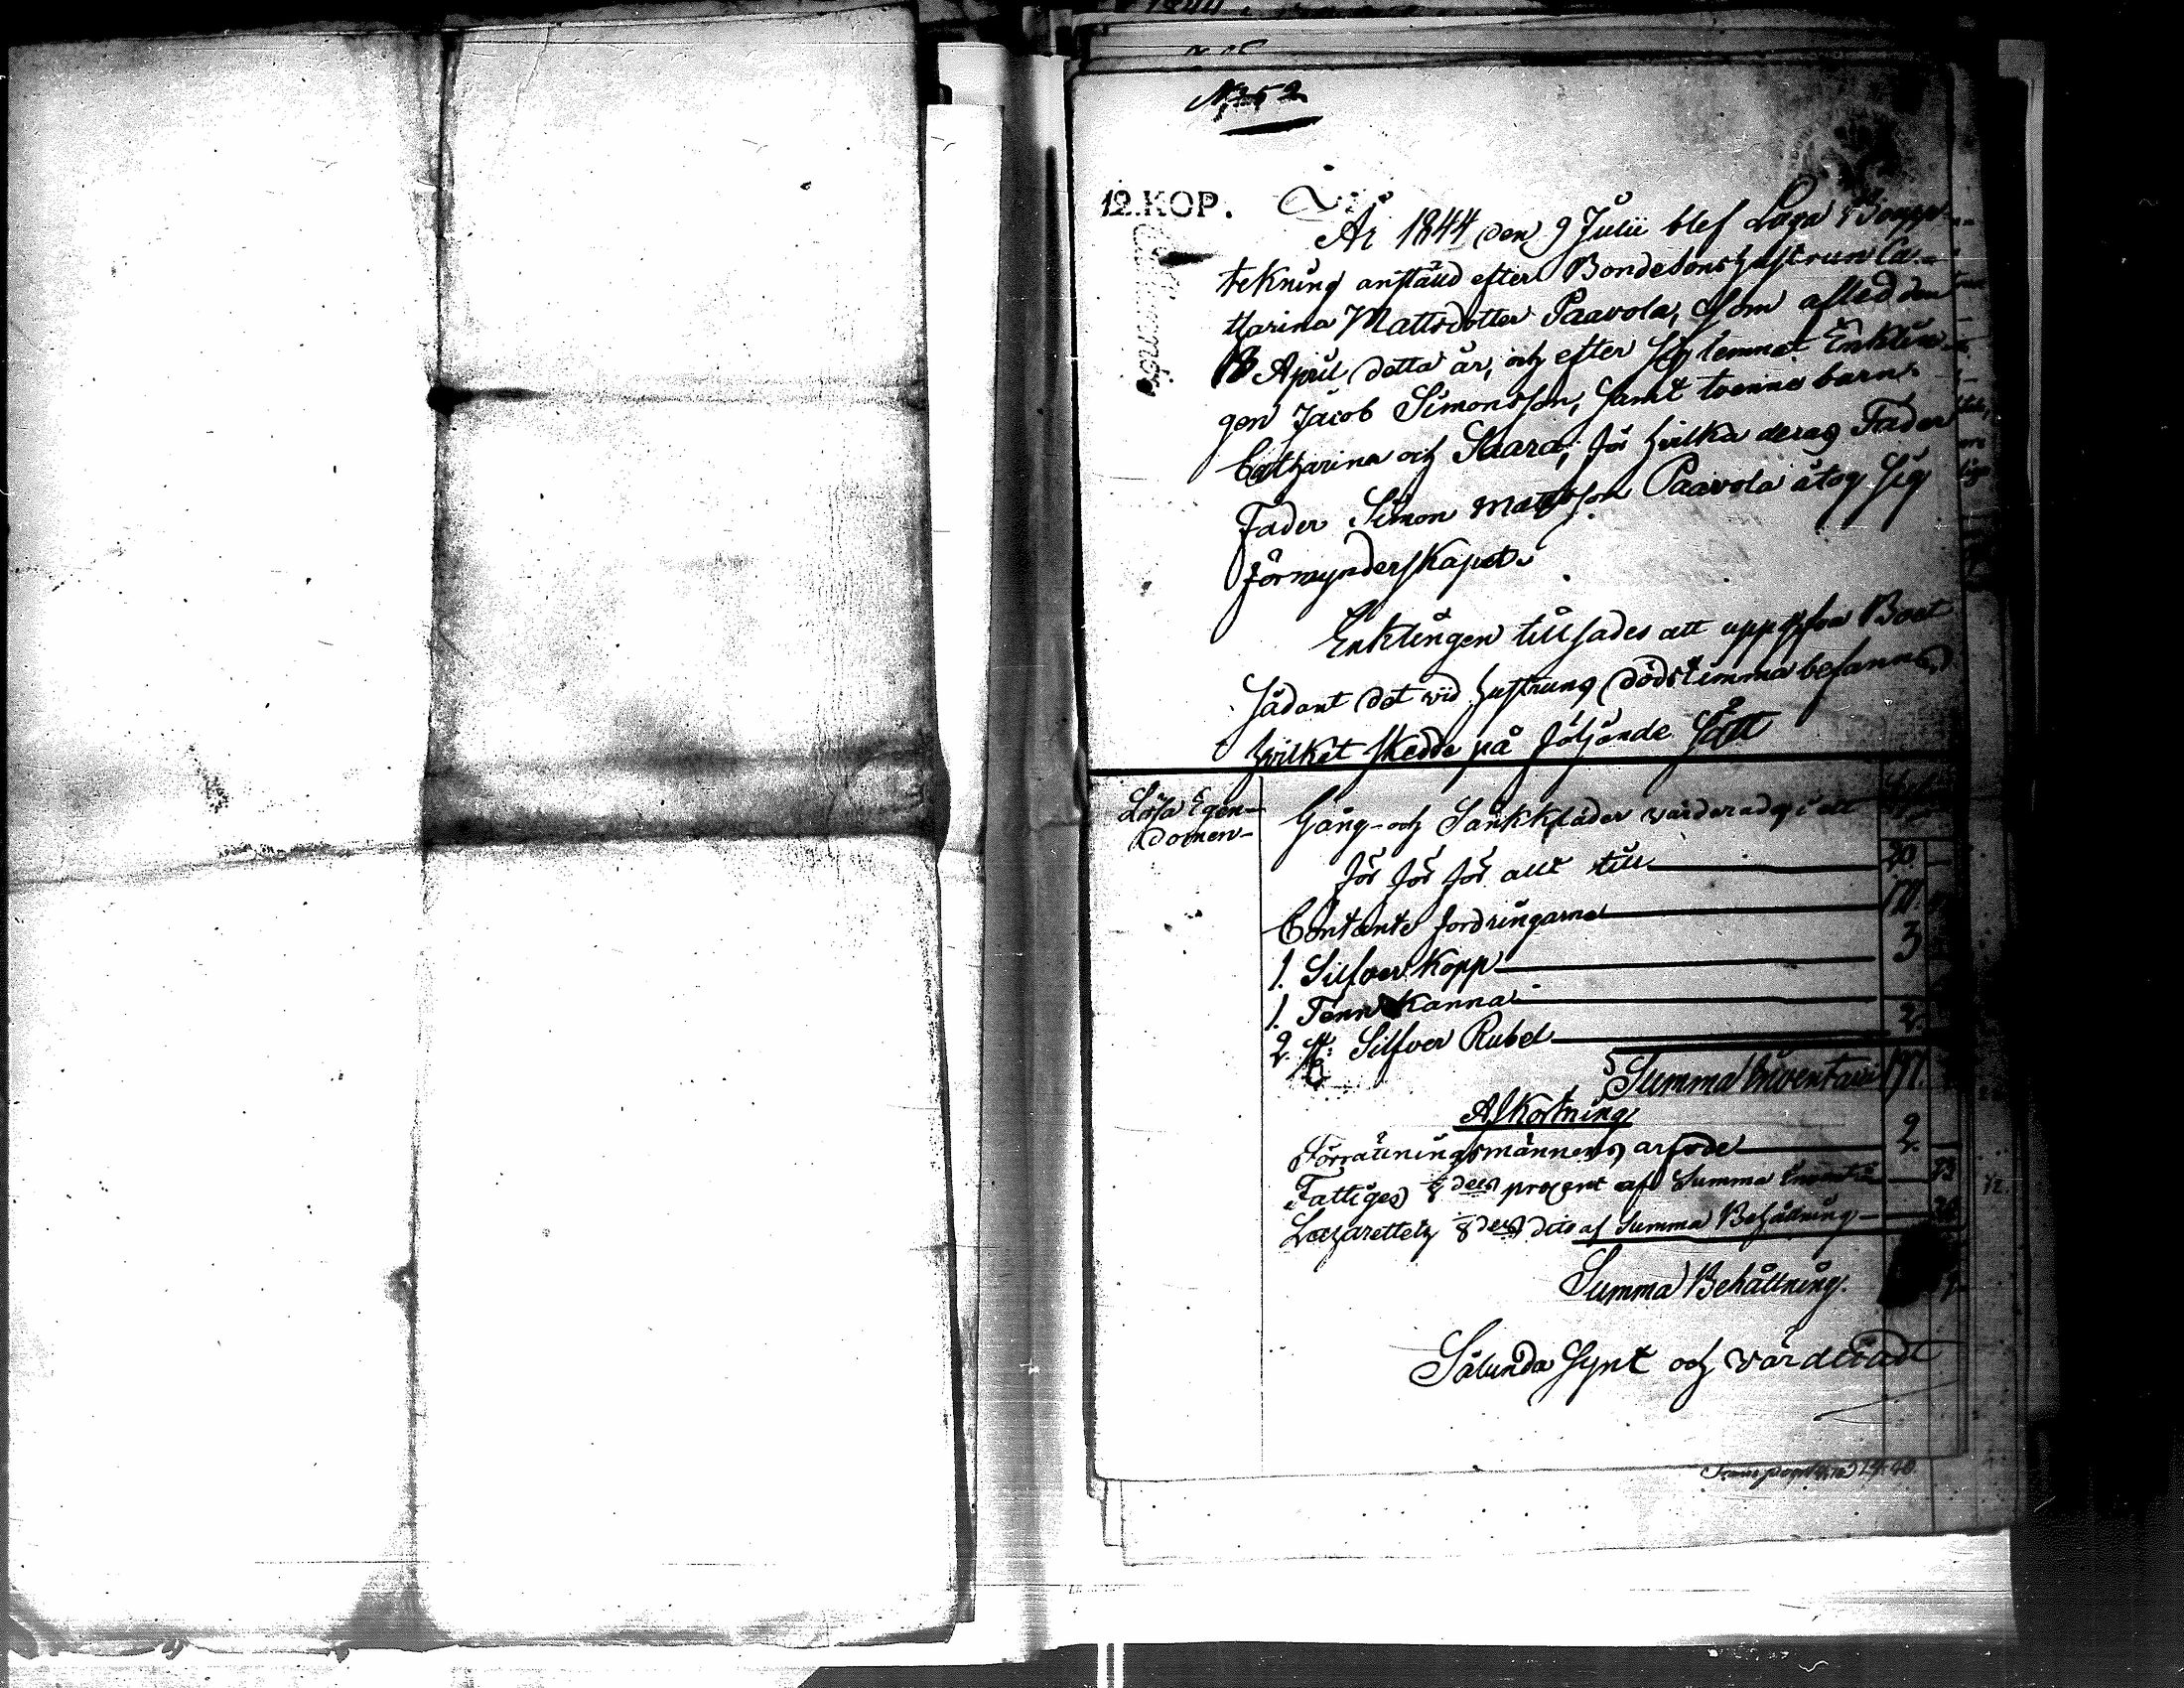 12. KOP.
År 1844 den 9 Julii blef Laga Boupp-
tekning anstäld efter Bondesonshustrun Ca-
tharina Mattsdotter Paavola, som afled den
18 April detta år, och efter sig lemnat Enklin-
gen Jacob Simonsson, samt tvenne barn
Catharina och Saara, för hvilka deras Fader
Fader Simon Mattsson Paavola åtog sig
förmynderskapet.
Enklingen tillsades att uppgifva Boet
sådant det vid hustruns dödstimma befanns,
hvilket skedde på följande sätt
Lösa Egen-
domen
Gång- och Sänkkläder värderades i ett
för för för allt till 20
Contante fordringarna 170
1. Silfver Kopp 3
1. Tenn Kanna
2 st: Silfver Rubel 2
Summa Inventarii 197
Afkortning
Förrättningsmännens arfvode 2
Fattiges 1/8 dels procent af Summa Inventarii
Lazarettets 1/8 dels dito af Summa Behållning
Summa Behållning.
Sålunda Synt och värderadt